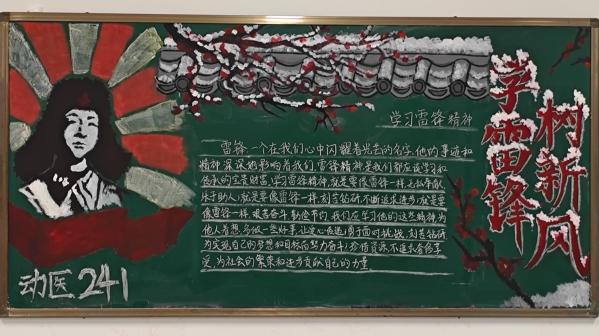 学习雷锋精神
雷锋,一个在我们心中闪耀着光芒的名字,他的事迹和
精神深深地影响着我们,雷锋精神是我们都应该学习和
传承的宝贵财富,学习雷锋精神,就是要像雷锋一样,无私奉献,
乐于助人;就是要像雷锋一样,刻苦钻研,不断追求进步;就是要
像雷锋一样,艰苦奋斗,勤俭节约,我们应学习他的这些精神,为
他人着想,多做一些好事,让爱心传递;勇于面对挑战,刻苦钻研
为实现自己的梦想和目标而努力奋斗;珍惜资源,不追求奢侈享
受,为社会的繁荣和进步贡献自己的力量
学雷锋
树新风
动医241